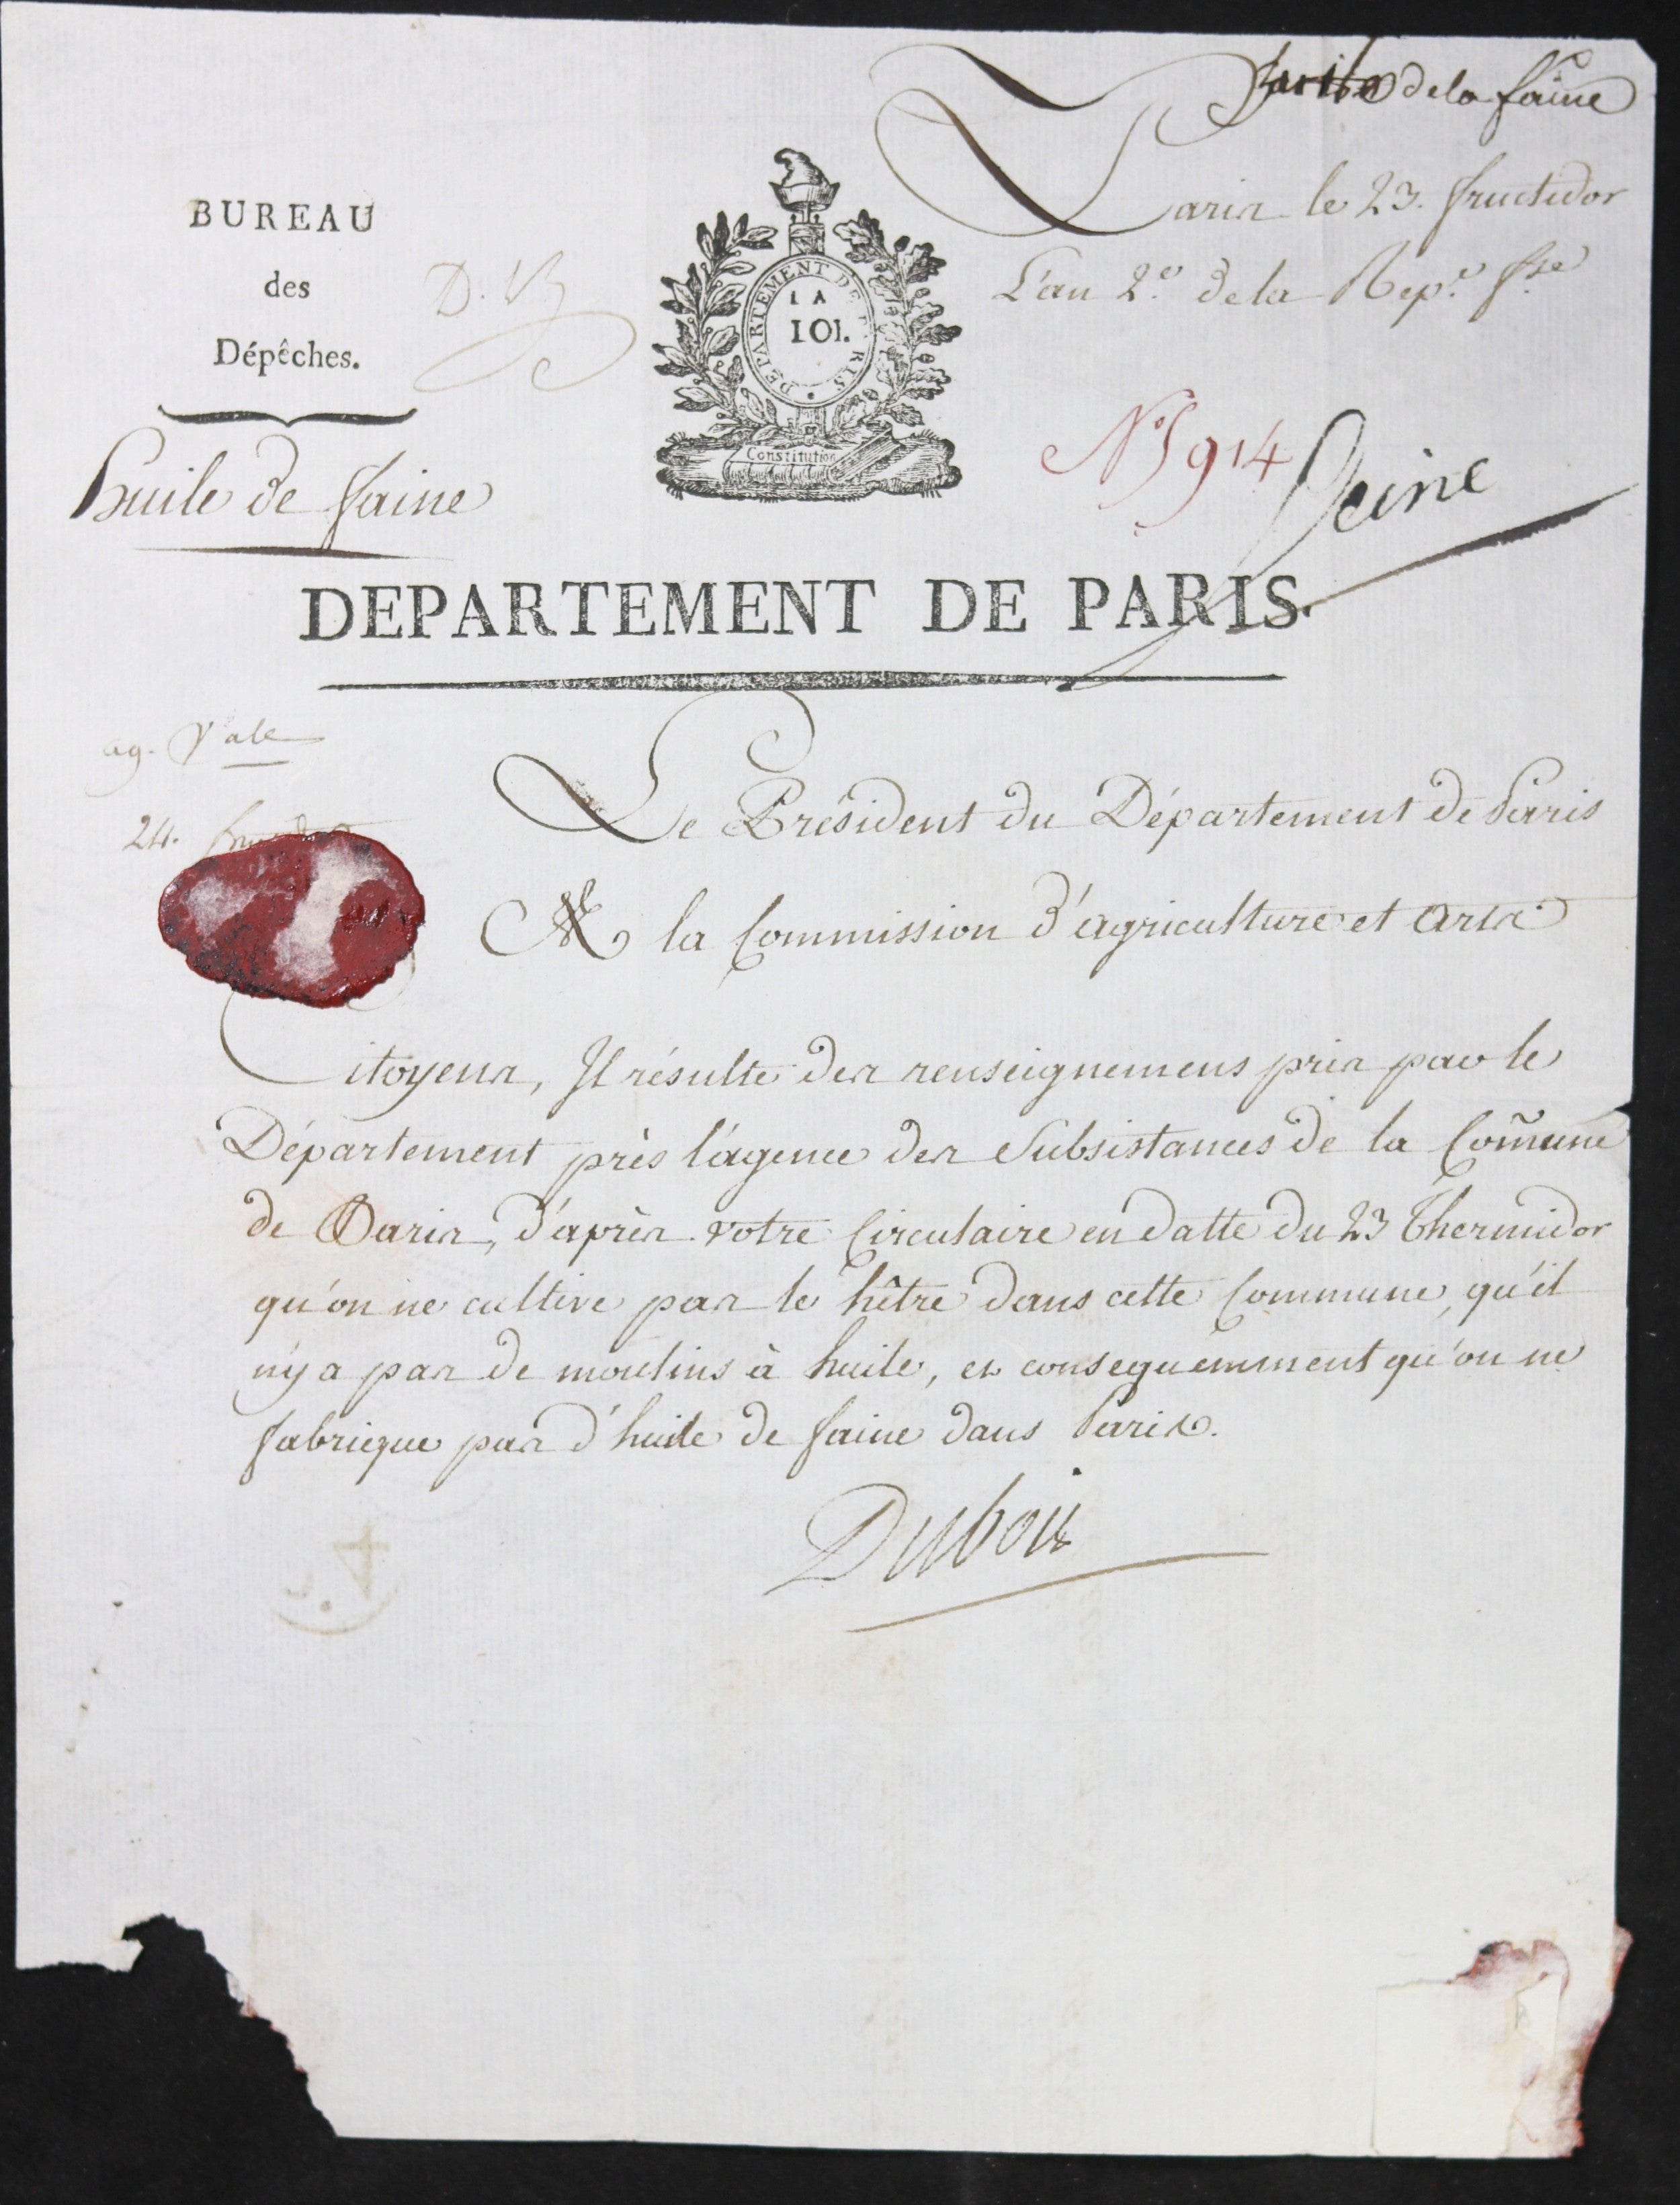 de la faine
Paris le 23. fructidor
L'an 2.e de la Rep.e fse
BUREAU
des
Dépêches.
DEPARTEMENT DE PARIS
LA
LOI.
Constitution
Huile de faine
N.o 914
Seine
DEPARTEMENT DE PARIS.
ag. vale
24.
Le Président du Département de Paris
A la Commission d'agriculture et Arts
Citoyens, Il résulte des renseignemens pris par le
Département près l'agence des Subsistances de la Com̃une
de Paris, d'après votre Circulaire en datte du 23 Thermidor
qu'on ne cultive pas le hêtre dans cette Commune, qu'il
n'y a pas de moulins à huile, et consequemment qu'on ne
fabrique pas d'huile de faine dans Paris.
Dubois